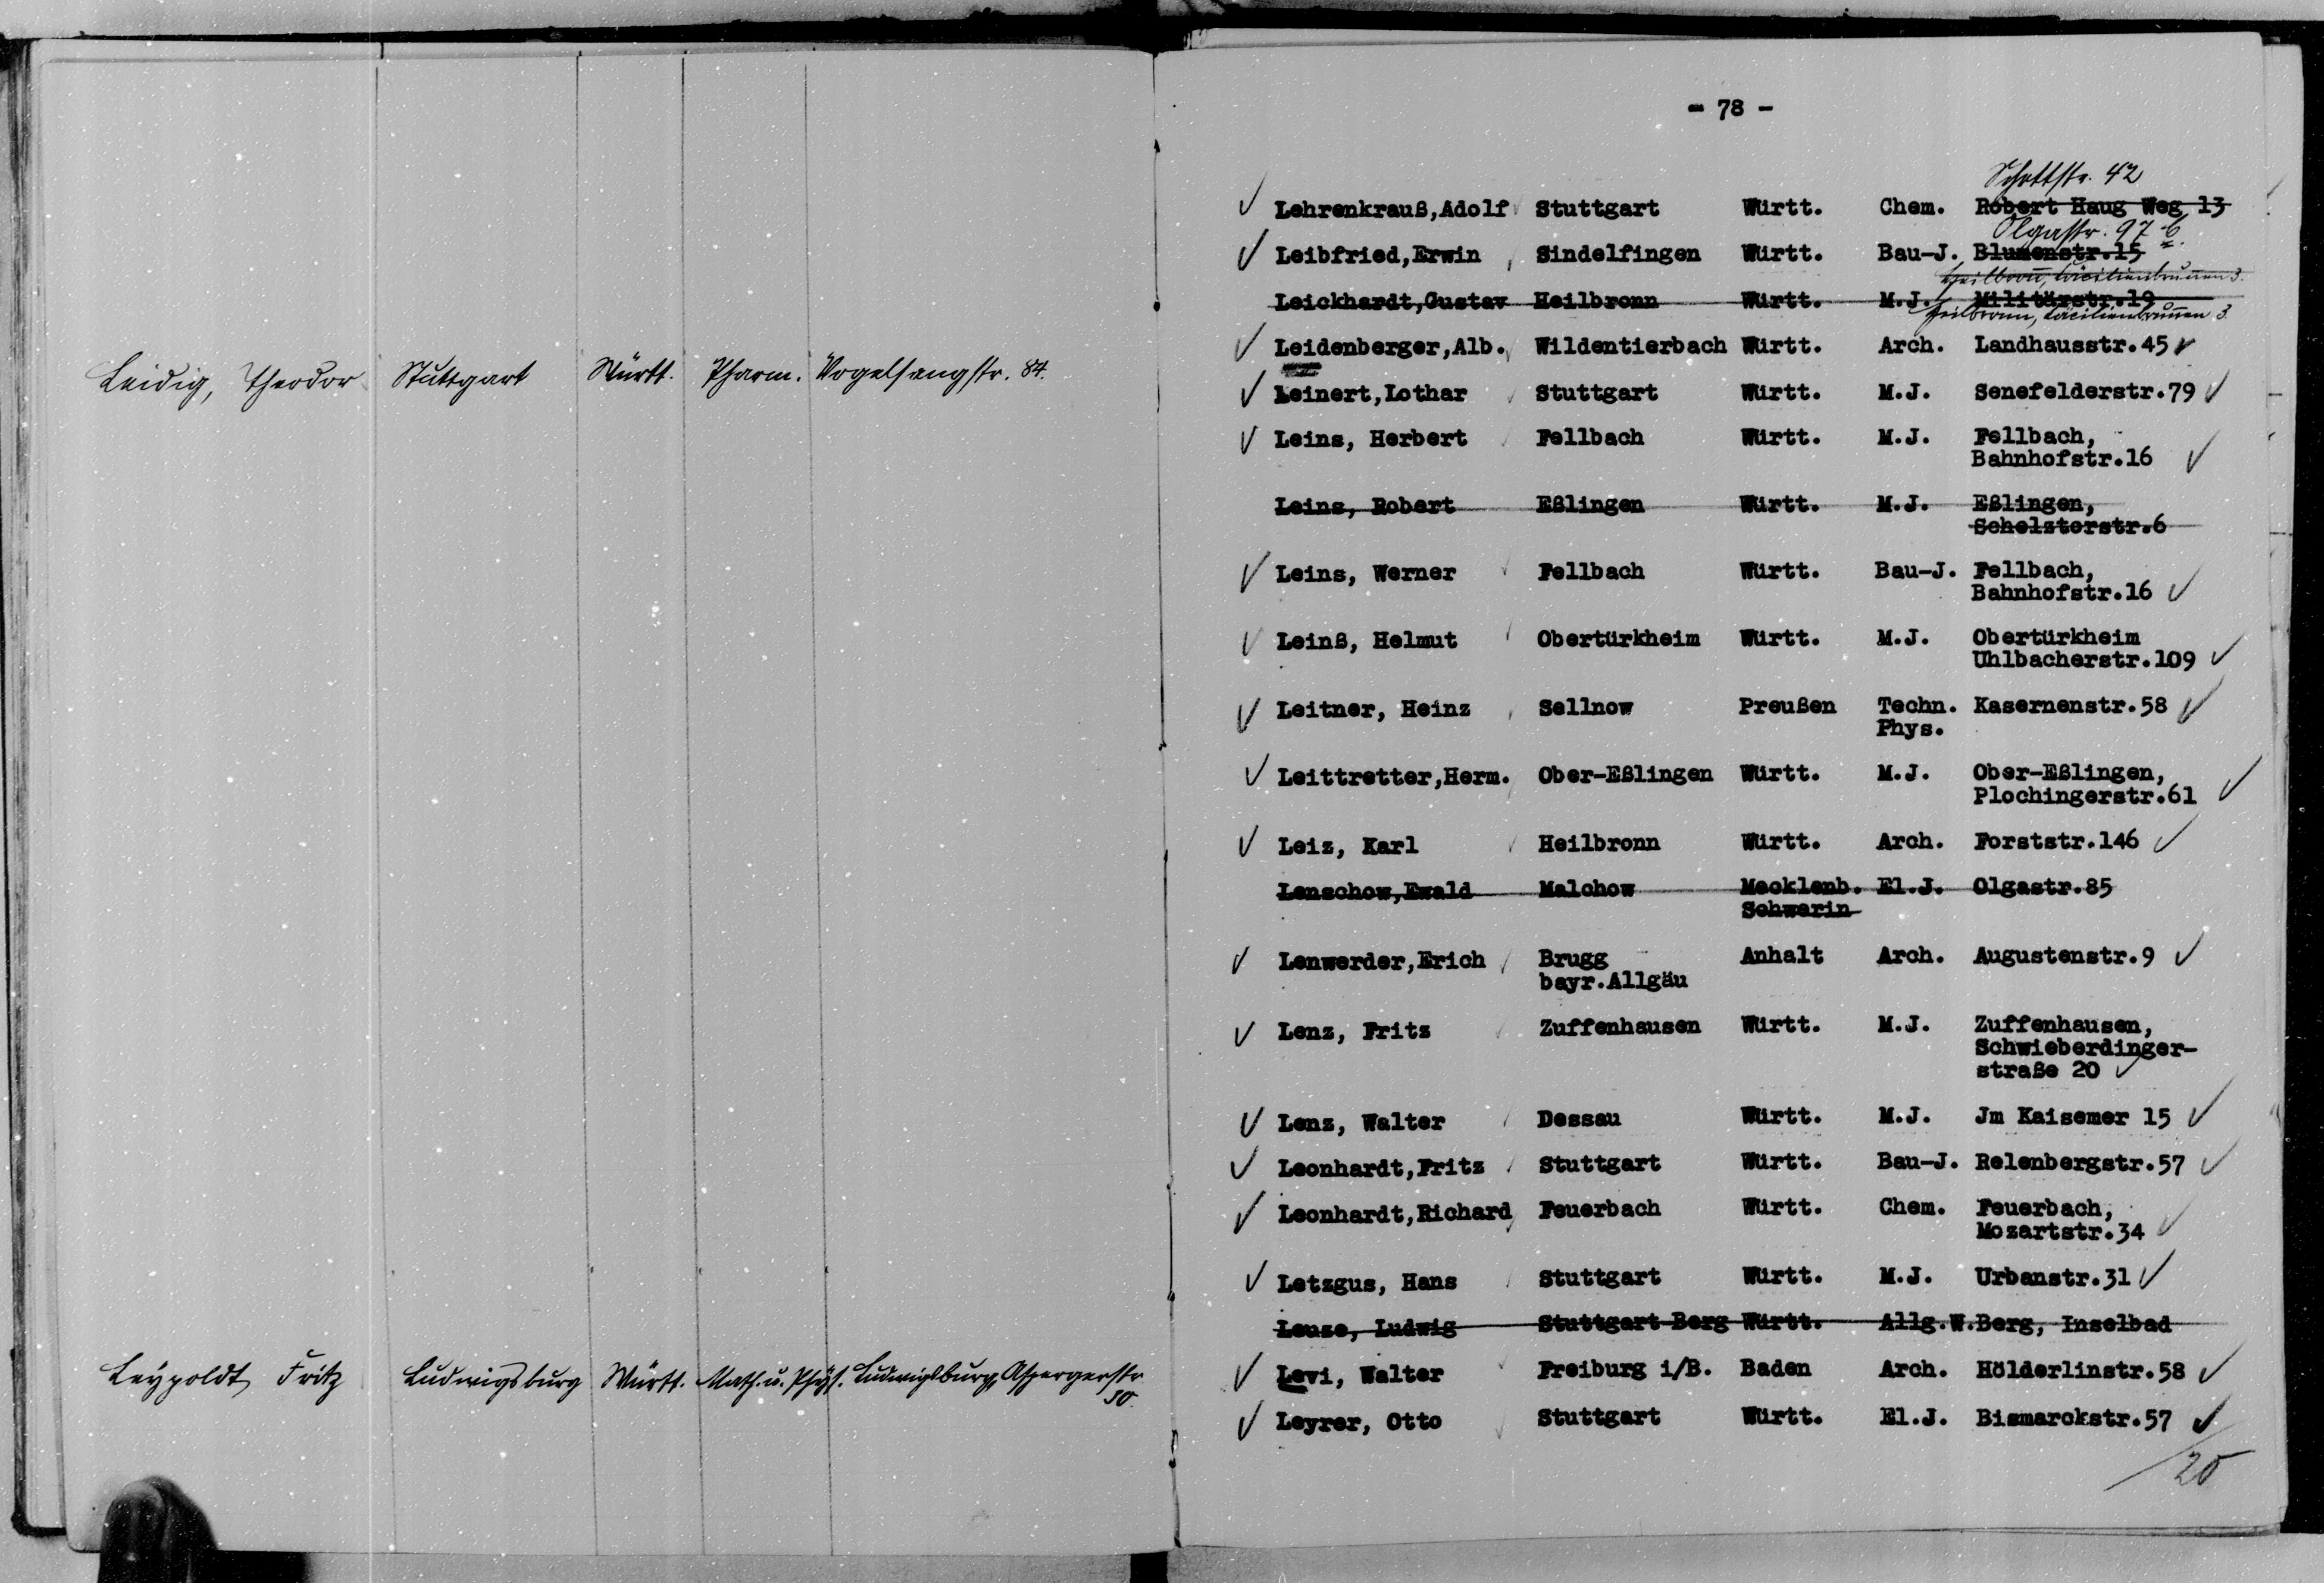 Leidig, Theodor Stuttgart Württ. Pharm. Vogelsangstr. 84.
Leypoldt Fritz Ludwigsburg Württ. Math. u. Phys. Ludwigsburg, Aspergerstr
50.
- 78 -
Schottstr. 42
Lehrenkrauß,Adolf Stuttgart Württ. Chem. Robert Haug Weg 13
Olgastr. 97 b.
Leibfried,Erwin Sindelfingen Württ. Bau-J. Blumenstr.15
Heilbronn, Cäcilienbrunnen 3.
Leickhardt,Gustav Heilbronn Württ. M.J. Militärstr.19
Heilbronn, Cäcilienbrunnen 3.
Leidenberger,Alb. Wildentierbach Württ. Arch. Landhausstr.45
Leinert,Lothar Stuttgart Württ. M.J. Senefelderstr.79
Leins, Herbert Fellbach Württ. M.J. Fellbach,
Bahnhofstr.16
Leins, Robert Eßlingen Württ. M.J. Eßlingen,
Schelztorstr.6
Leins, Werner Fellbach Württ. Bau-J. Fellbach,
Bahnhofstr.16
Leinß, Helmut Obertürkheim Württ. M.J. Obertürkheim
Uhlbacherstr.109
Leitner, Heinz Sellnow Preußen Techn. Kasernenstr.58
Phys.
Leittretter,Herm. Ober-Eßlingen Württ. M.J. Ober-Eßlingen,
Plochingerstr.61
Leiz, Karl Heilbronn Württ. Arch. Forststr.146
Lenschow,Ewald Malchow Mecklenb. El.J. Olgastr.85
Schwerin
Lenwerder,Erich Brugg Anhalt Arch. Augustenstr.9
bayr.Allgäu
Lenz, Fritz Zuffenhausen Württ. M.J. Zuffenhausen,
Schwieberdinger-
straße 20
Lenz, Walter Dessau Württ. M.J. Jm Kaisemer 15
Leonhardt,Fritz Stuttgart Württ. Bau-J. Relenbergstr.57
Leonhardt,Richard Feuerbach Württ. Chem. Feuerbach,
Mozartstr.34
Letzgus, Hans Stuttgart Württ. M.J. Urbanstr.31
Leuze, Ludwig Stuttgart Berg Württ. Allg.W.Berg, Inselbad
Levi, Walter Freiburg i/B. Baden Arch. Hölderlinstr.58
Leyrer, Otto Stuttgart Württ. El.J. Bismarckstr.57
20